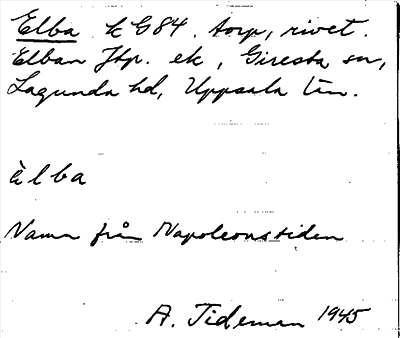 Elba k G84. torp, rivet.
Elban Jtp. ek, Giresta sn,
Lagunda hd, Uppsala län.
èlba
Namn från Napoleonstiden
A. Tideman 1945